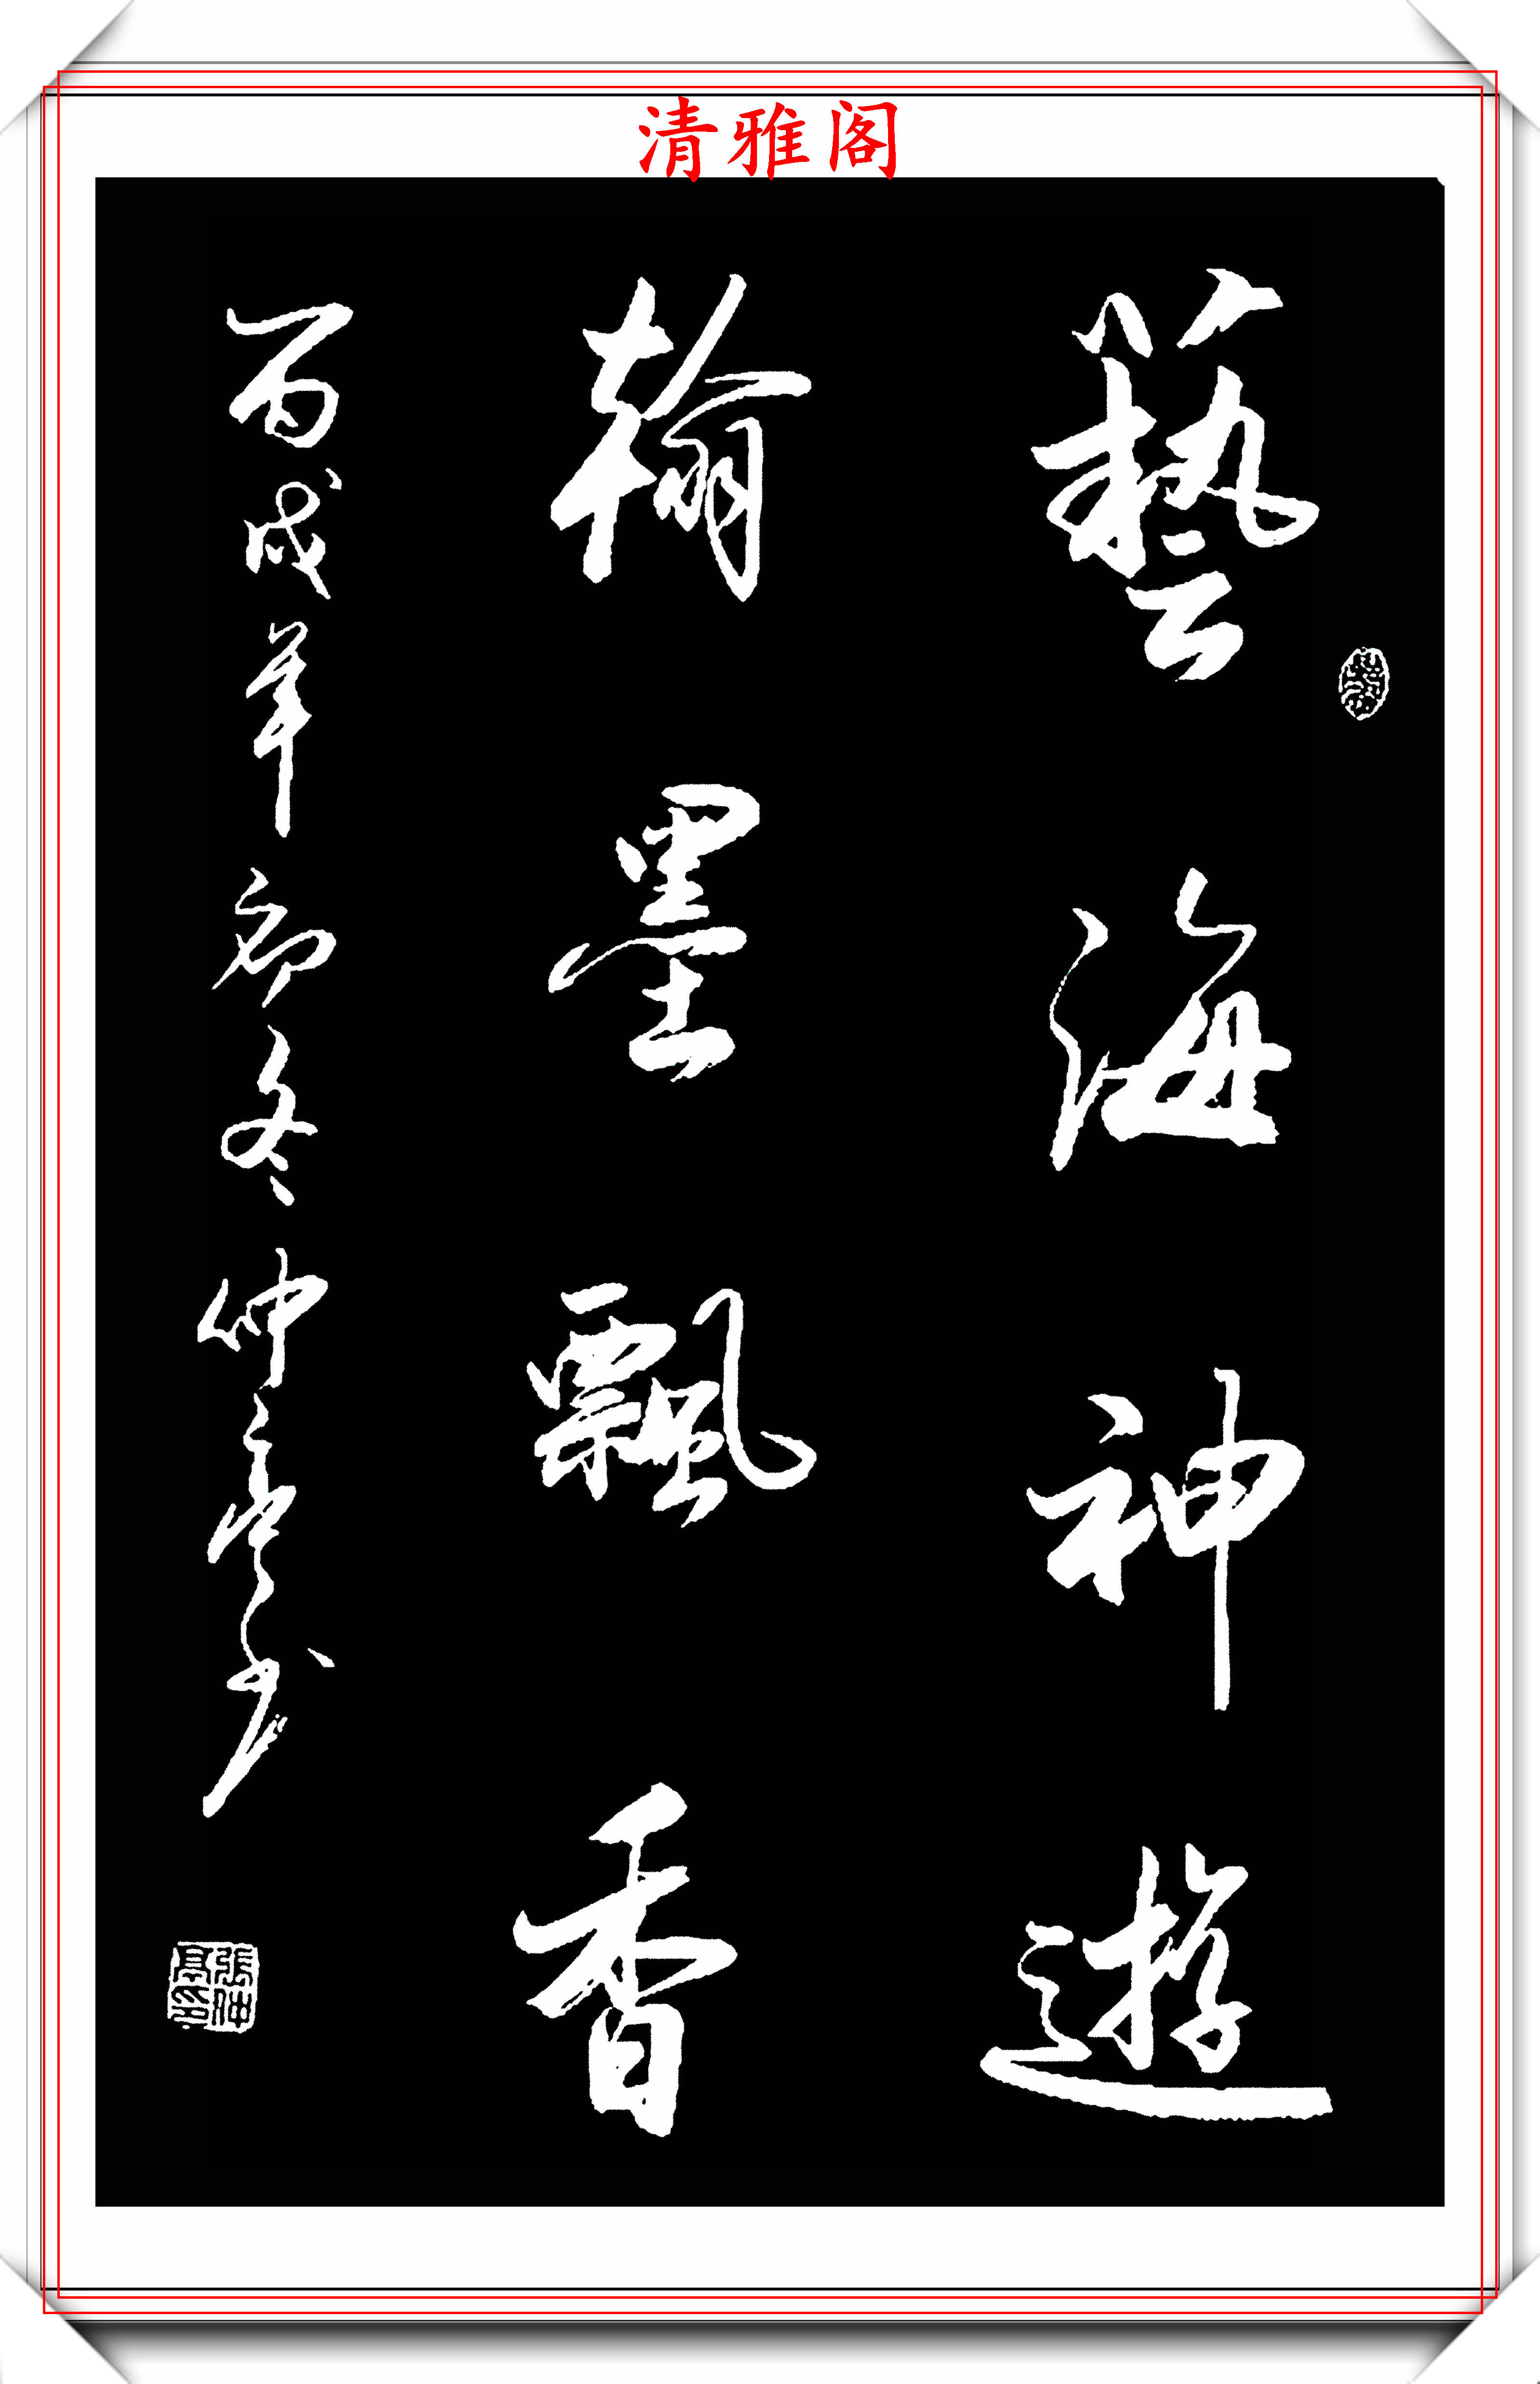 清雅阁
藝海神遊
翰墨飄香
丙戌年初冬仲亭书
張仲亭印